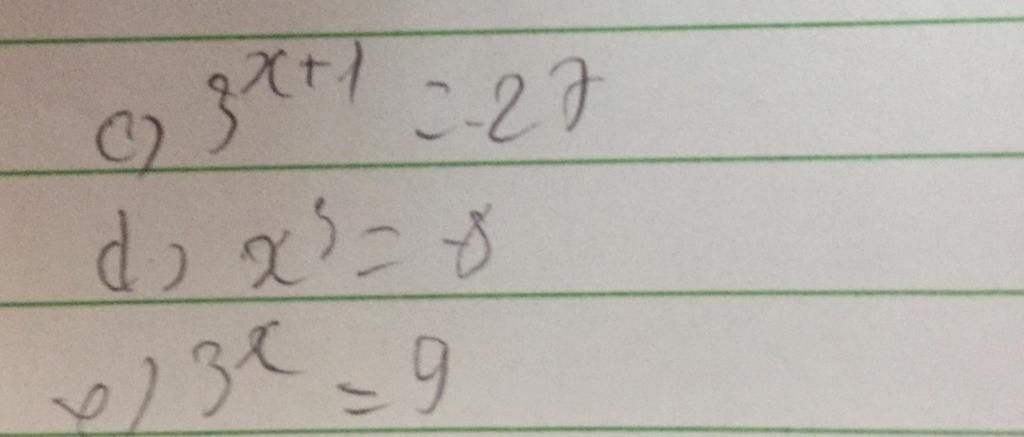 c) 3^{x+1} = -27
d) x^3 = -8
e) 3^x = 9